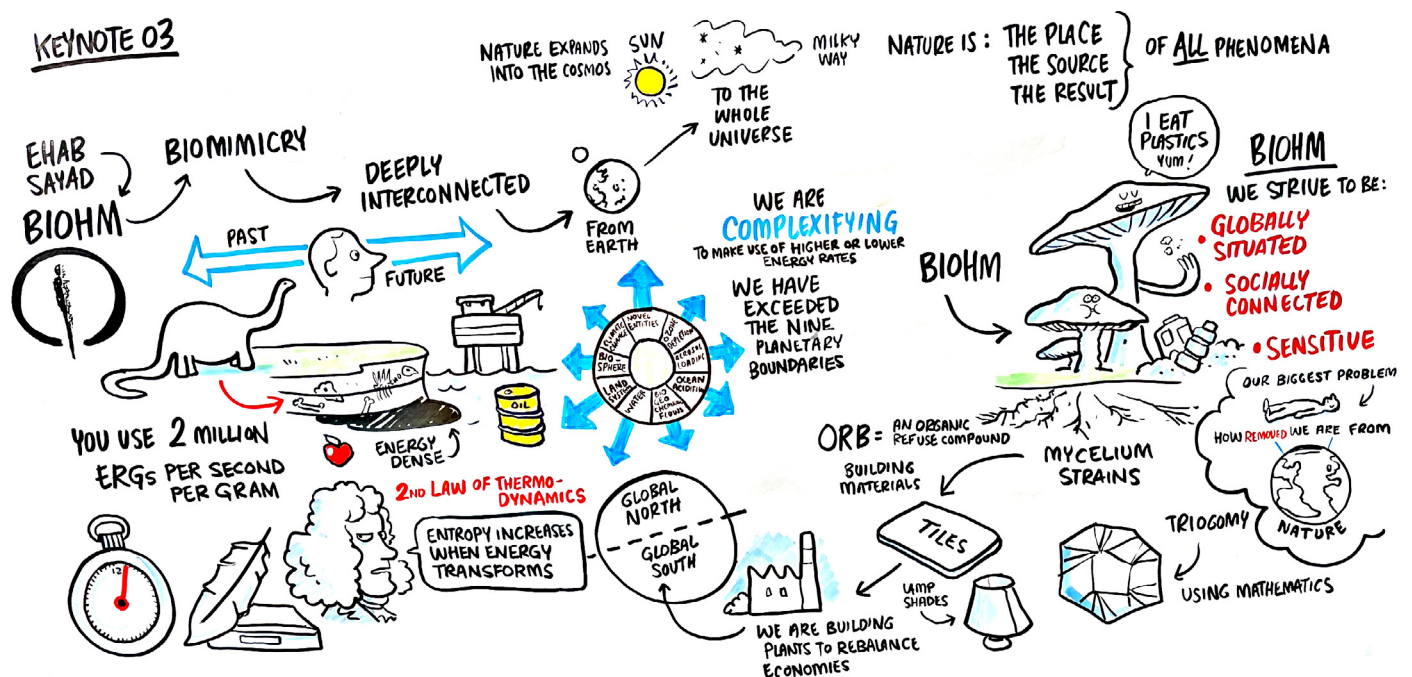 KEYNOTE 03
EHAB
SAYAD
BIOHM
BIOMIMICRY
DEEPLY
INTERCONNECTED
PAST
FUTURE
NATURE EXPANDS
INTO THE COSMOS
SUN
MILKY
WAY
TO THE
WHOLE
UNIVERSE
FROM
EARTH
NATURE IS: THE PLACE
THE SOURCE
THE RESULT
OF ALL PHENOMENA
WE ARE
COMPLEXIFYING
TO MAKE USE OF HIGHER OR LOWER
ENERGY RATES
WE HAVE
EXCEEDED
THE NINE
PLANETARY
BOUNDARIES
CLIMATE
CHANGE
NOVEL
ENTITIES
OZONE
DEPLETION
AEROSOL
LOADING
OCEAN
ACIDIFICN
BIO
GEO
CHEMICAL
FLOWS
WATER
LAND
SYSTEM
BIO
SPHERE
OIL
ENERGY
DENSE
YOU USE 2 MILLION
ERGS PER SECOND
PER GRAM
12
2ND LAW OF THERMO-
DYNAMICS
ENTROPY INCREASES
WHEN ENERGY
TRANSFORMS
GLOBAL
NORTH
GLOBAL
SOUTH
WE ARE BUILDING
PLANTS TO REBALANCE
ECONOMIES
I EAT
PLASTICS
YUM!
BIOHM
BIOHM
WE STRIVE TO BE:
• GLOBALLY
SITUATED
• SOCIALLY
CONNECTED
• SENSITIVE
OUR BIGGEST PROBLEM
HOW REMOVED WE ARE FROM
NATURE
MYCELIUM
STRAINS
ORB = AN ORGANIC
REFUSE COMPOUND
BUILDING
MATERIALS
TILES
LAMP
SHADES
TRIOGOMY
USING MATHEMATICS